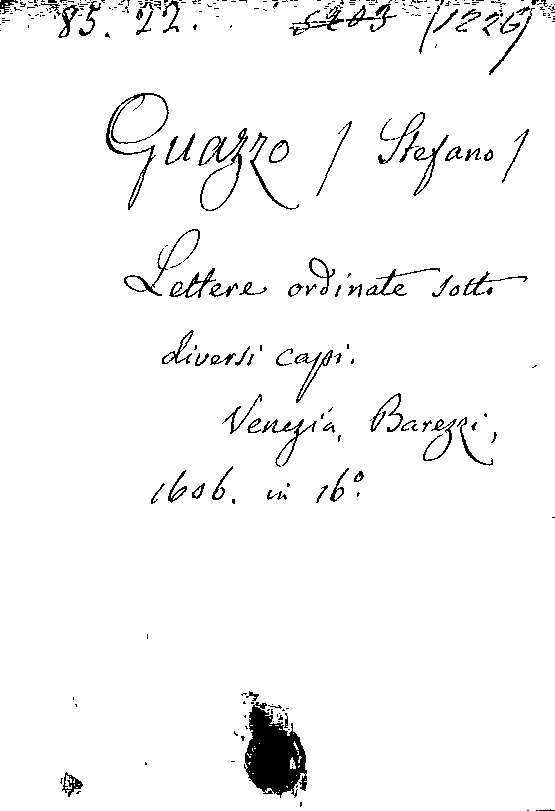 85. 22. 5203 (1226)
Guazzo / Stefano /
Lettere ordinate sotto
diversi capi.
Venezia, Barezzi,
1606. in 16º.